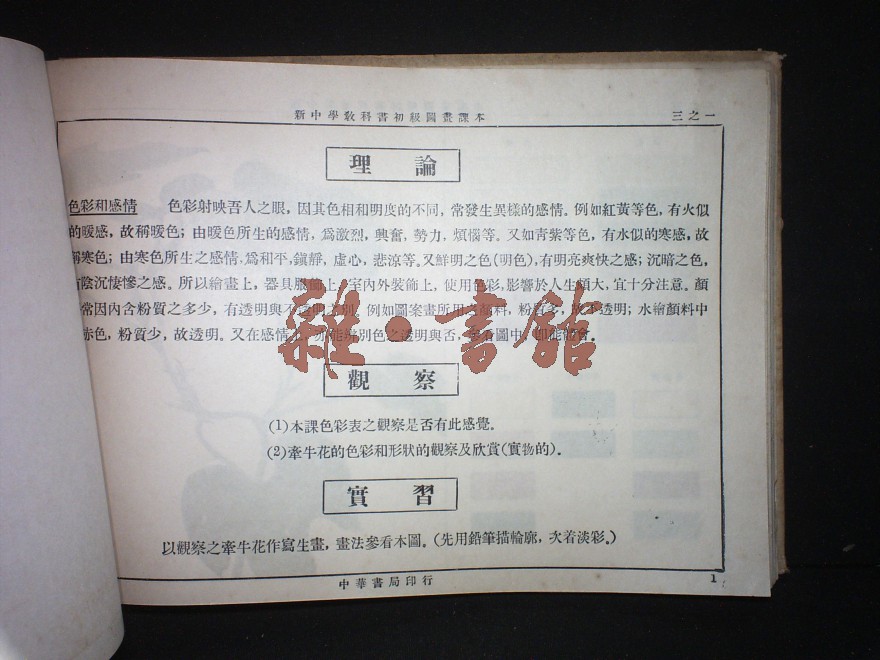 新中學教科書初級圖畫課本
三之一
理論
色彩和感情 色彩射映吾人之眼，因其色相和明度的不同，常發生異樣的感情。例如紅黃等色，有火似
的暖感，故稱暖色；由暖色所生的感情，爲激烈，興奮，勢力，煩惱等。又如青紫等色，有水似的寒感，故
稱寒色；由寒色所生之感情，爲和平，鎭靜，虛心，悲涼等。又鮮明之色(明色)，有明亮爽快之感；沉暗之色，
陰沉悽慘之感。所以繪畫上，器具服飾上，室內外裝飾上，使用色彩，影響於人生頗大，宜十分注意。顏
常因內含粉質之多少，有透明與不透明之別，例如圖案畫所用之顏料，粉質多，故不透明；水繪顏料中
赤色，粉質少，故透明。又在感情上，亦能辨別色之透明與否，參看圖中，即能領會。
雜·書館
觀察
(1)本課色彩表之觀察是否有此感覺。
(2)牽牛花的色彩和形狀的觀察及欣賞(實物的)。
實習
以觀察之牽牛花作寫生畫，畫法參看本圖。(先用鉛筆描輪廓，次着淡彩。)
中華書局印行
1